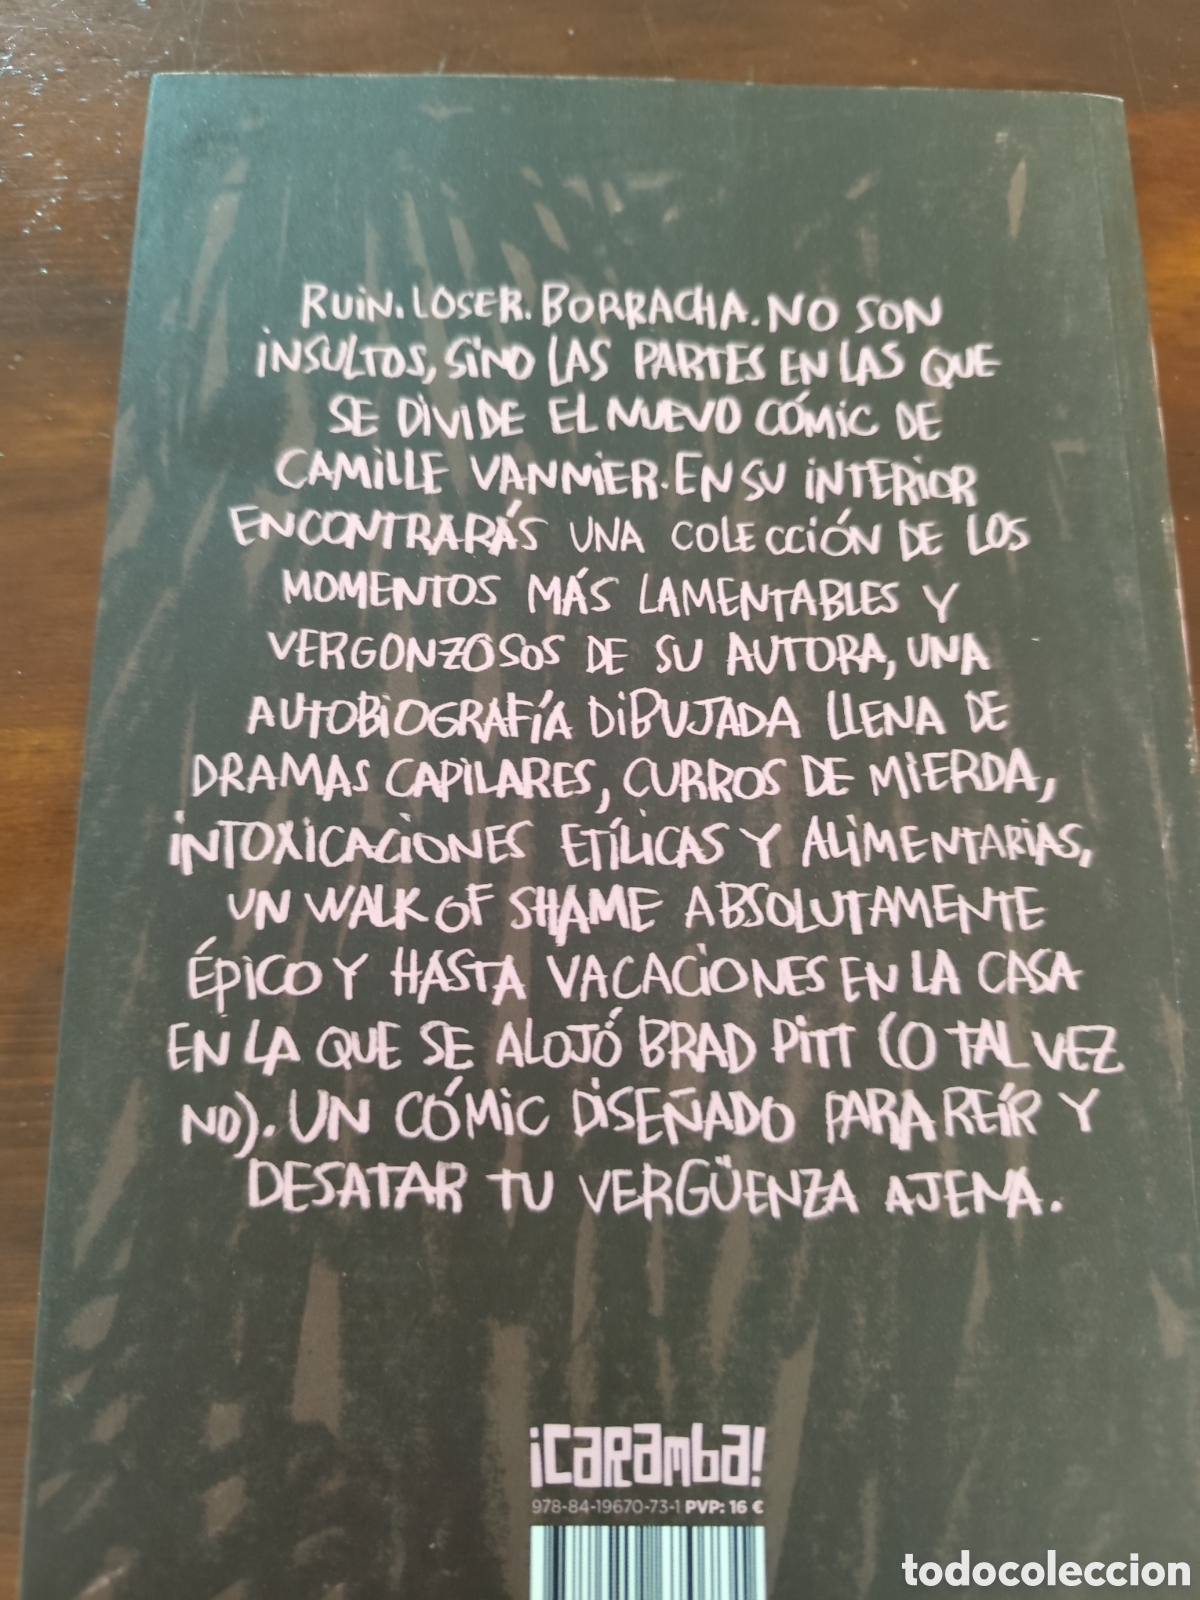 RUIN. LOSER. BORRACHA. NO SON
INSULTOS, SINO LAS PARTES EN LAS QUE
SE DIVIDE EL NUEVO CÓMIC DE
CAMILLE VANNIER. EN SU INTERIOR
ENCONTRARÁS UNA COLECCIÓN DE LOS
MOMENTOS MÁS LAMENTABLES Y
VERGONZOSOS DE SU AUTORA, UNA
AUTOBIOGRAFÍA DIBUJADA LLENA DE
DRAMAS CAPILARES, CURROS DE MIERDA,
INTOXICACIONES ETÍLICAS Y ALIMENTARIAS,
UN WALK OF SHAME ABSOLUTAMENTE
ÉPICO Y HASTA VACACIONES EN LA CASA
EN LA QUE SE ALOJÓ BRAD PITT (O TAL VEZ
NO). UN CÓMIC DISEÑADO PARA REÍR Y
DESATAR TU VERGÜENZA AJENA.
¡CARAMBA!
978-84-19670-73-1 PVP: 16 €
todocoleccion